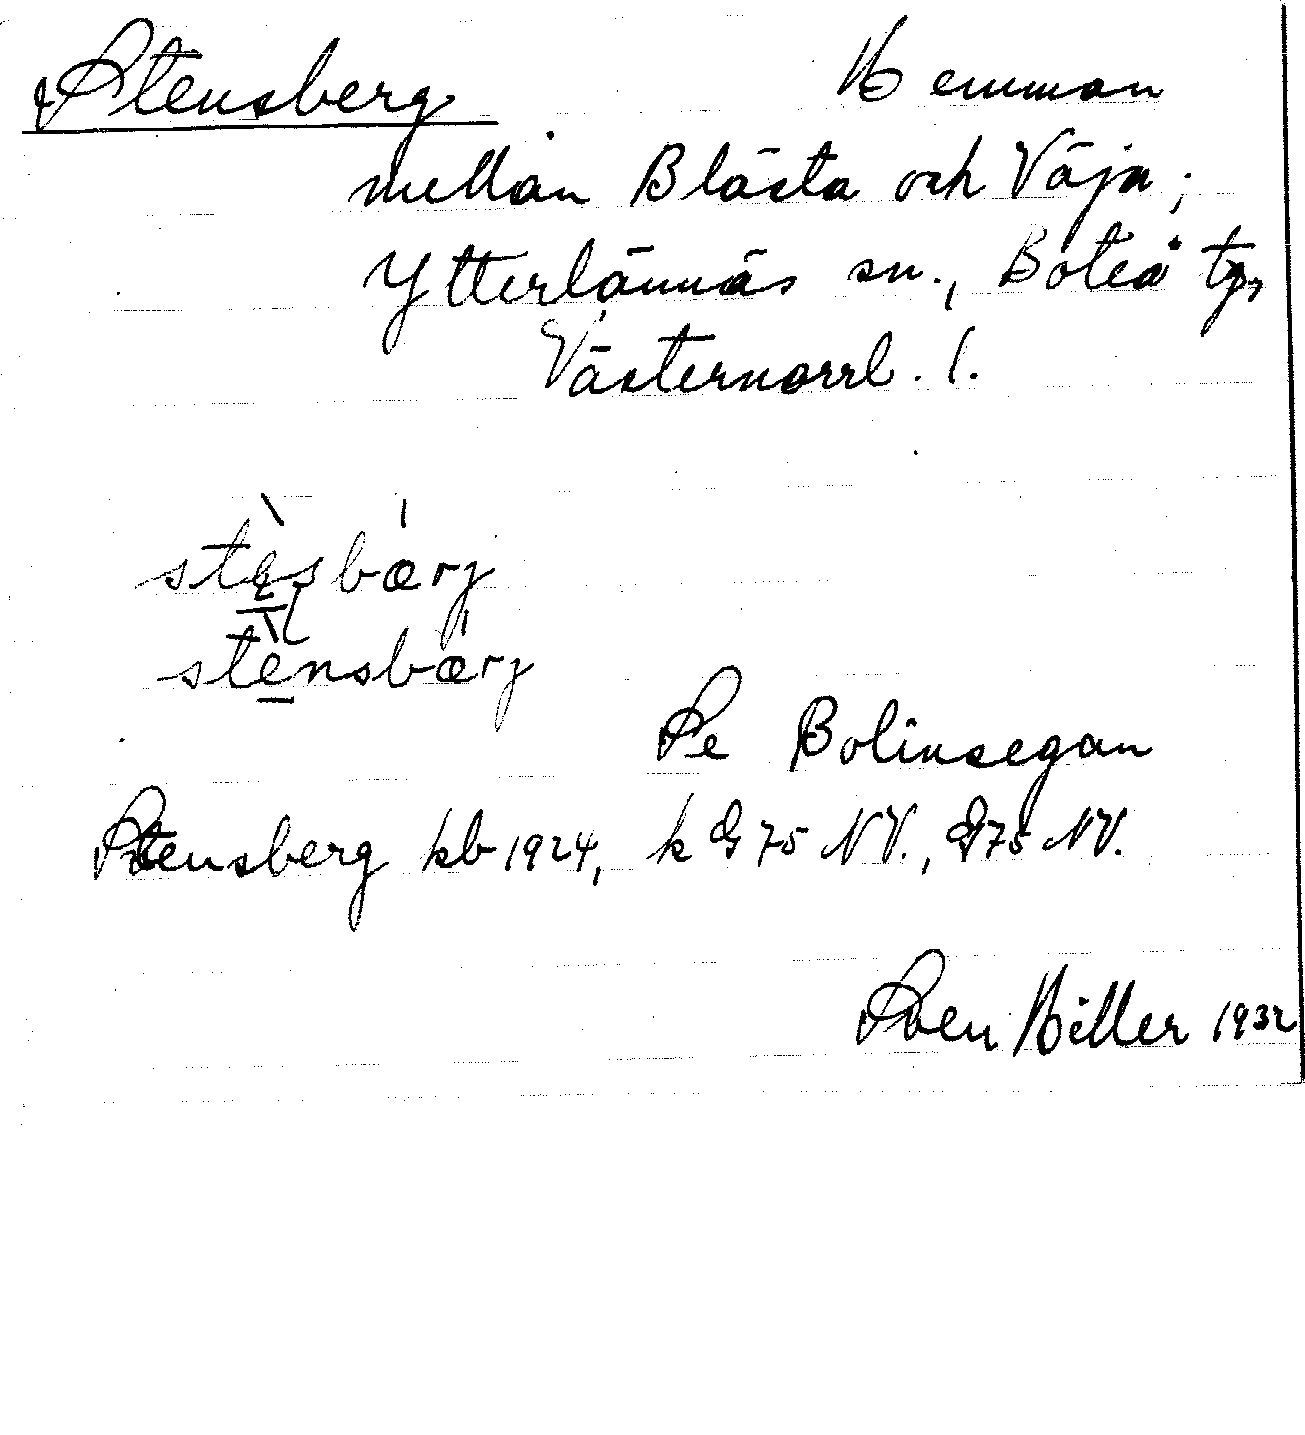 Stensberg Hemman
mellan Blästa och Väja;
Ytterlännäs sn., Boteå tg,
Västernorrl. l.
stèsbærj
stènsbærj
Se Bolinsegan
Stensberg kb 1924, k G 75 NV., G 75 NV.
Sven Hiller 1932